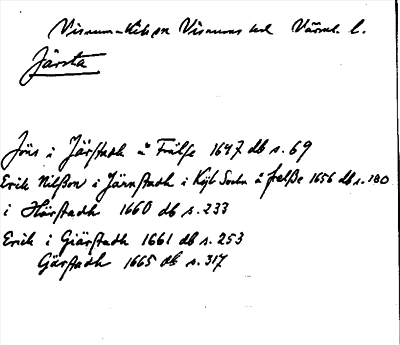 Visnum-Kils sn Visnums hd Värml. l.
Järsta
Jöns i Järstadh å Frälse 1647 db s. 69
Erik Nilßon i Järnstadh i Kijl Sochn å frelße 1656 db s. 180
i Härstadh 1660 db s. 233
Erik i Giärstadh 1661 db s. 253
Gärstadh 1665 db s. 317